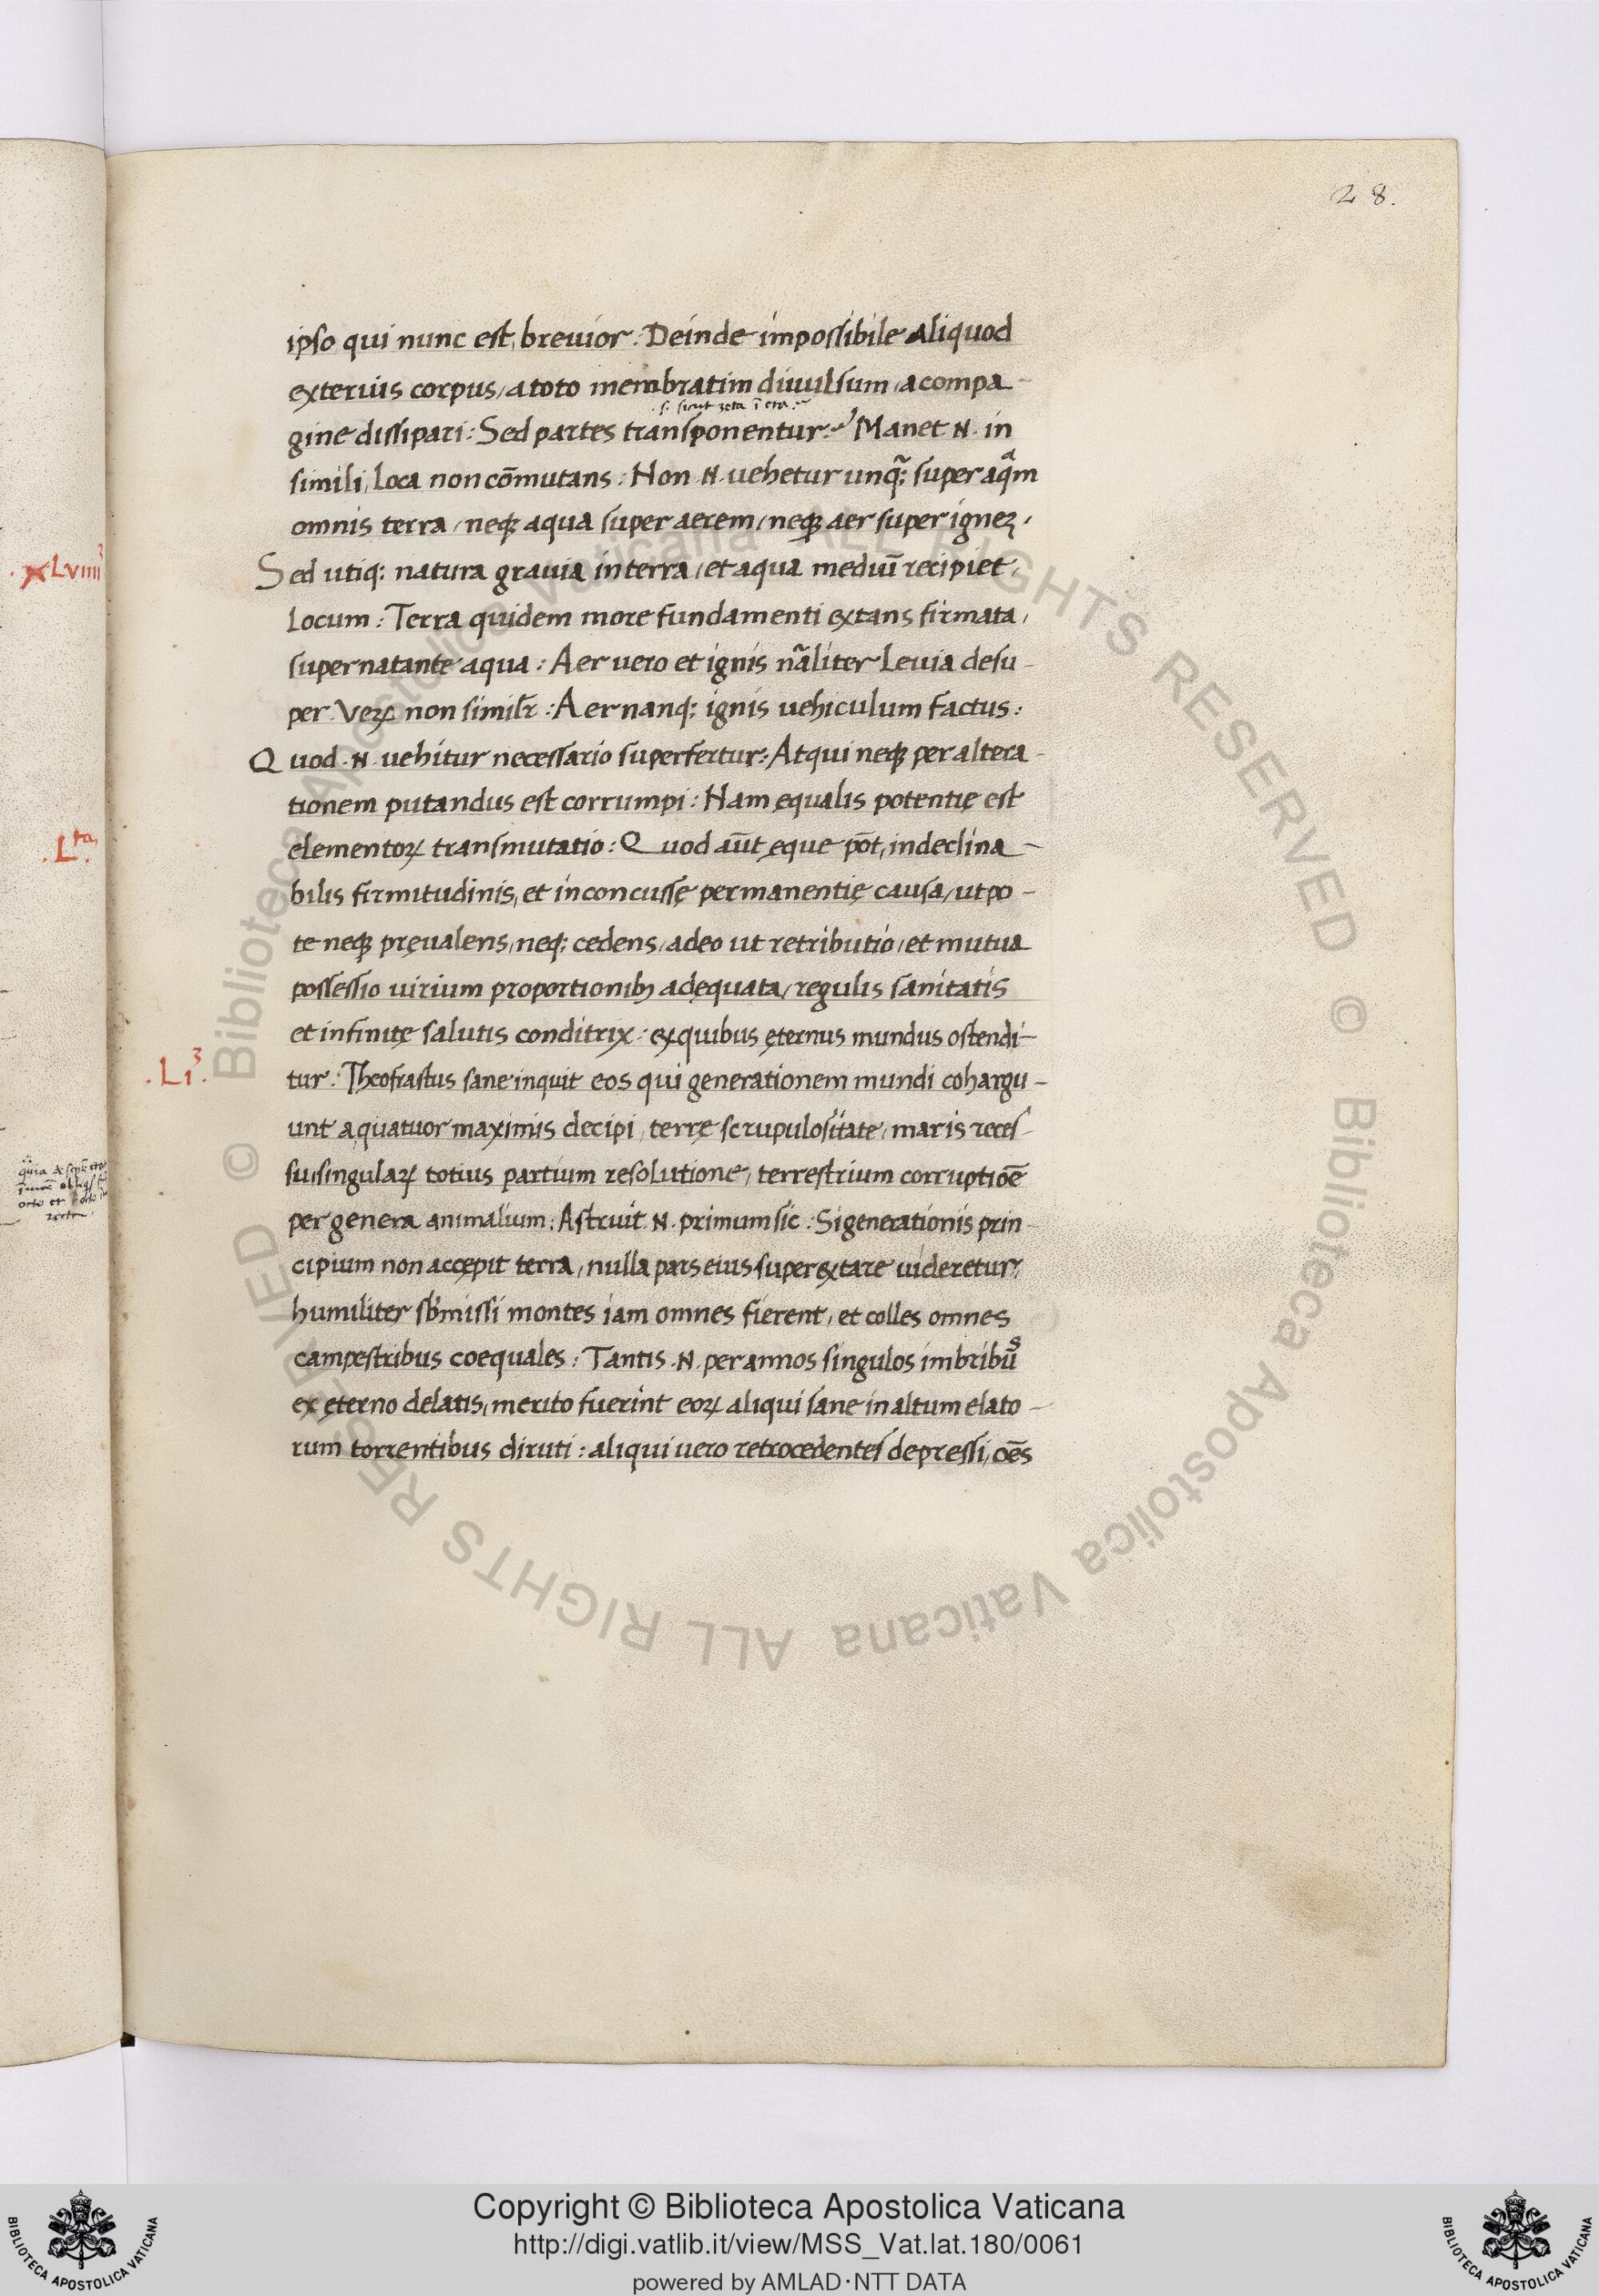 28.
ipso qui nunc est, breuior: Deinde impossibile aliquod
exterius corpus, a toto membratim diuulsum, a compa-
s. sicut zeta ī eta
gine dissipari: Sed partes transponentur: Manet .N. in
simili, Loca non cōmutans: Non .N. uehetur unq̃; super aq̃m
omnis terra, neqꝫ aqua super aerem, neqꝫ aer super igneꝫ.
.xLviiii³
Sed utiq; natura grauia in terra, et aqua mediū recipiet,
Locum: Terra quidem more fundamenti extans firmata,
supernatante aqua: Aer uero et ignis nāliter Leuia desu-
per. Veꝝ non similr̄: Aer nanq; ignis uehiculum factus:
Quod .N. uehitur necessario superfertur: Atqui neqꝫ per altera-
tionem putandus est corrumpi: Nam ęqualis potentię est
.Lᵗᵃ.
elementoꝝ transmutatio: Quod aūt ęque pōt, indeclina-
bilis firmitudinis, et inconcussę permanentię causa, ut po-
te neqꝫ pręualens, neq; cedens, adeo ut retributio, et mutua
possessio uirium proportionibꝫ adęquata, regulis sanitatis
et infinitę salutis conditrix: ex quibus ęternus mundus ostendi-
.Li³.
tur: Theofrastus sane inquit eos qui generationem mundi cohargu-
unt a quatuor maximis decipi, terrę scrupulositate, maris reces-
su, singulaꝝ totius partium resolutione, terrestrium corruptiōe
per genera animalium: Astruit .N. primum sic: Si generationis prin-
cipium non accępit terra, nulla pars eius super extare uideretur,
humiliter sb̄missi montes iam omnes fierent, et colles omnes
campestribus coequales: Tantis .N. per annos singulos imbribus
ex ęterno delatis, merito fuerint eoꝝ aliqui sane in altum elato-
rum torrentibus diruti: aliqui uero retrocedentes depressi, oēs
Copyright © Biblioteca Apostolica Vaticana
http://digi.vatlib.it/view/MSS_Vat.lat.180/0061
powered by AMLAD·NTT DATA
BIBLIOTECA APOSTOLICA VATICANA
BIBLIOTECA APOSTOLICA VATICANA
© Biblioteca Apostolica Vaticana ALL RIGHTS RESERVED © Biblioteca Apostolica Vaticana ALL RIGHTS RESERVED